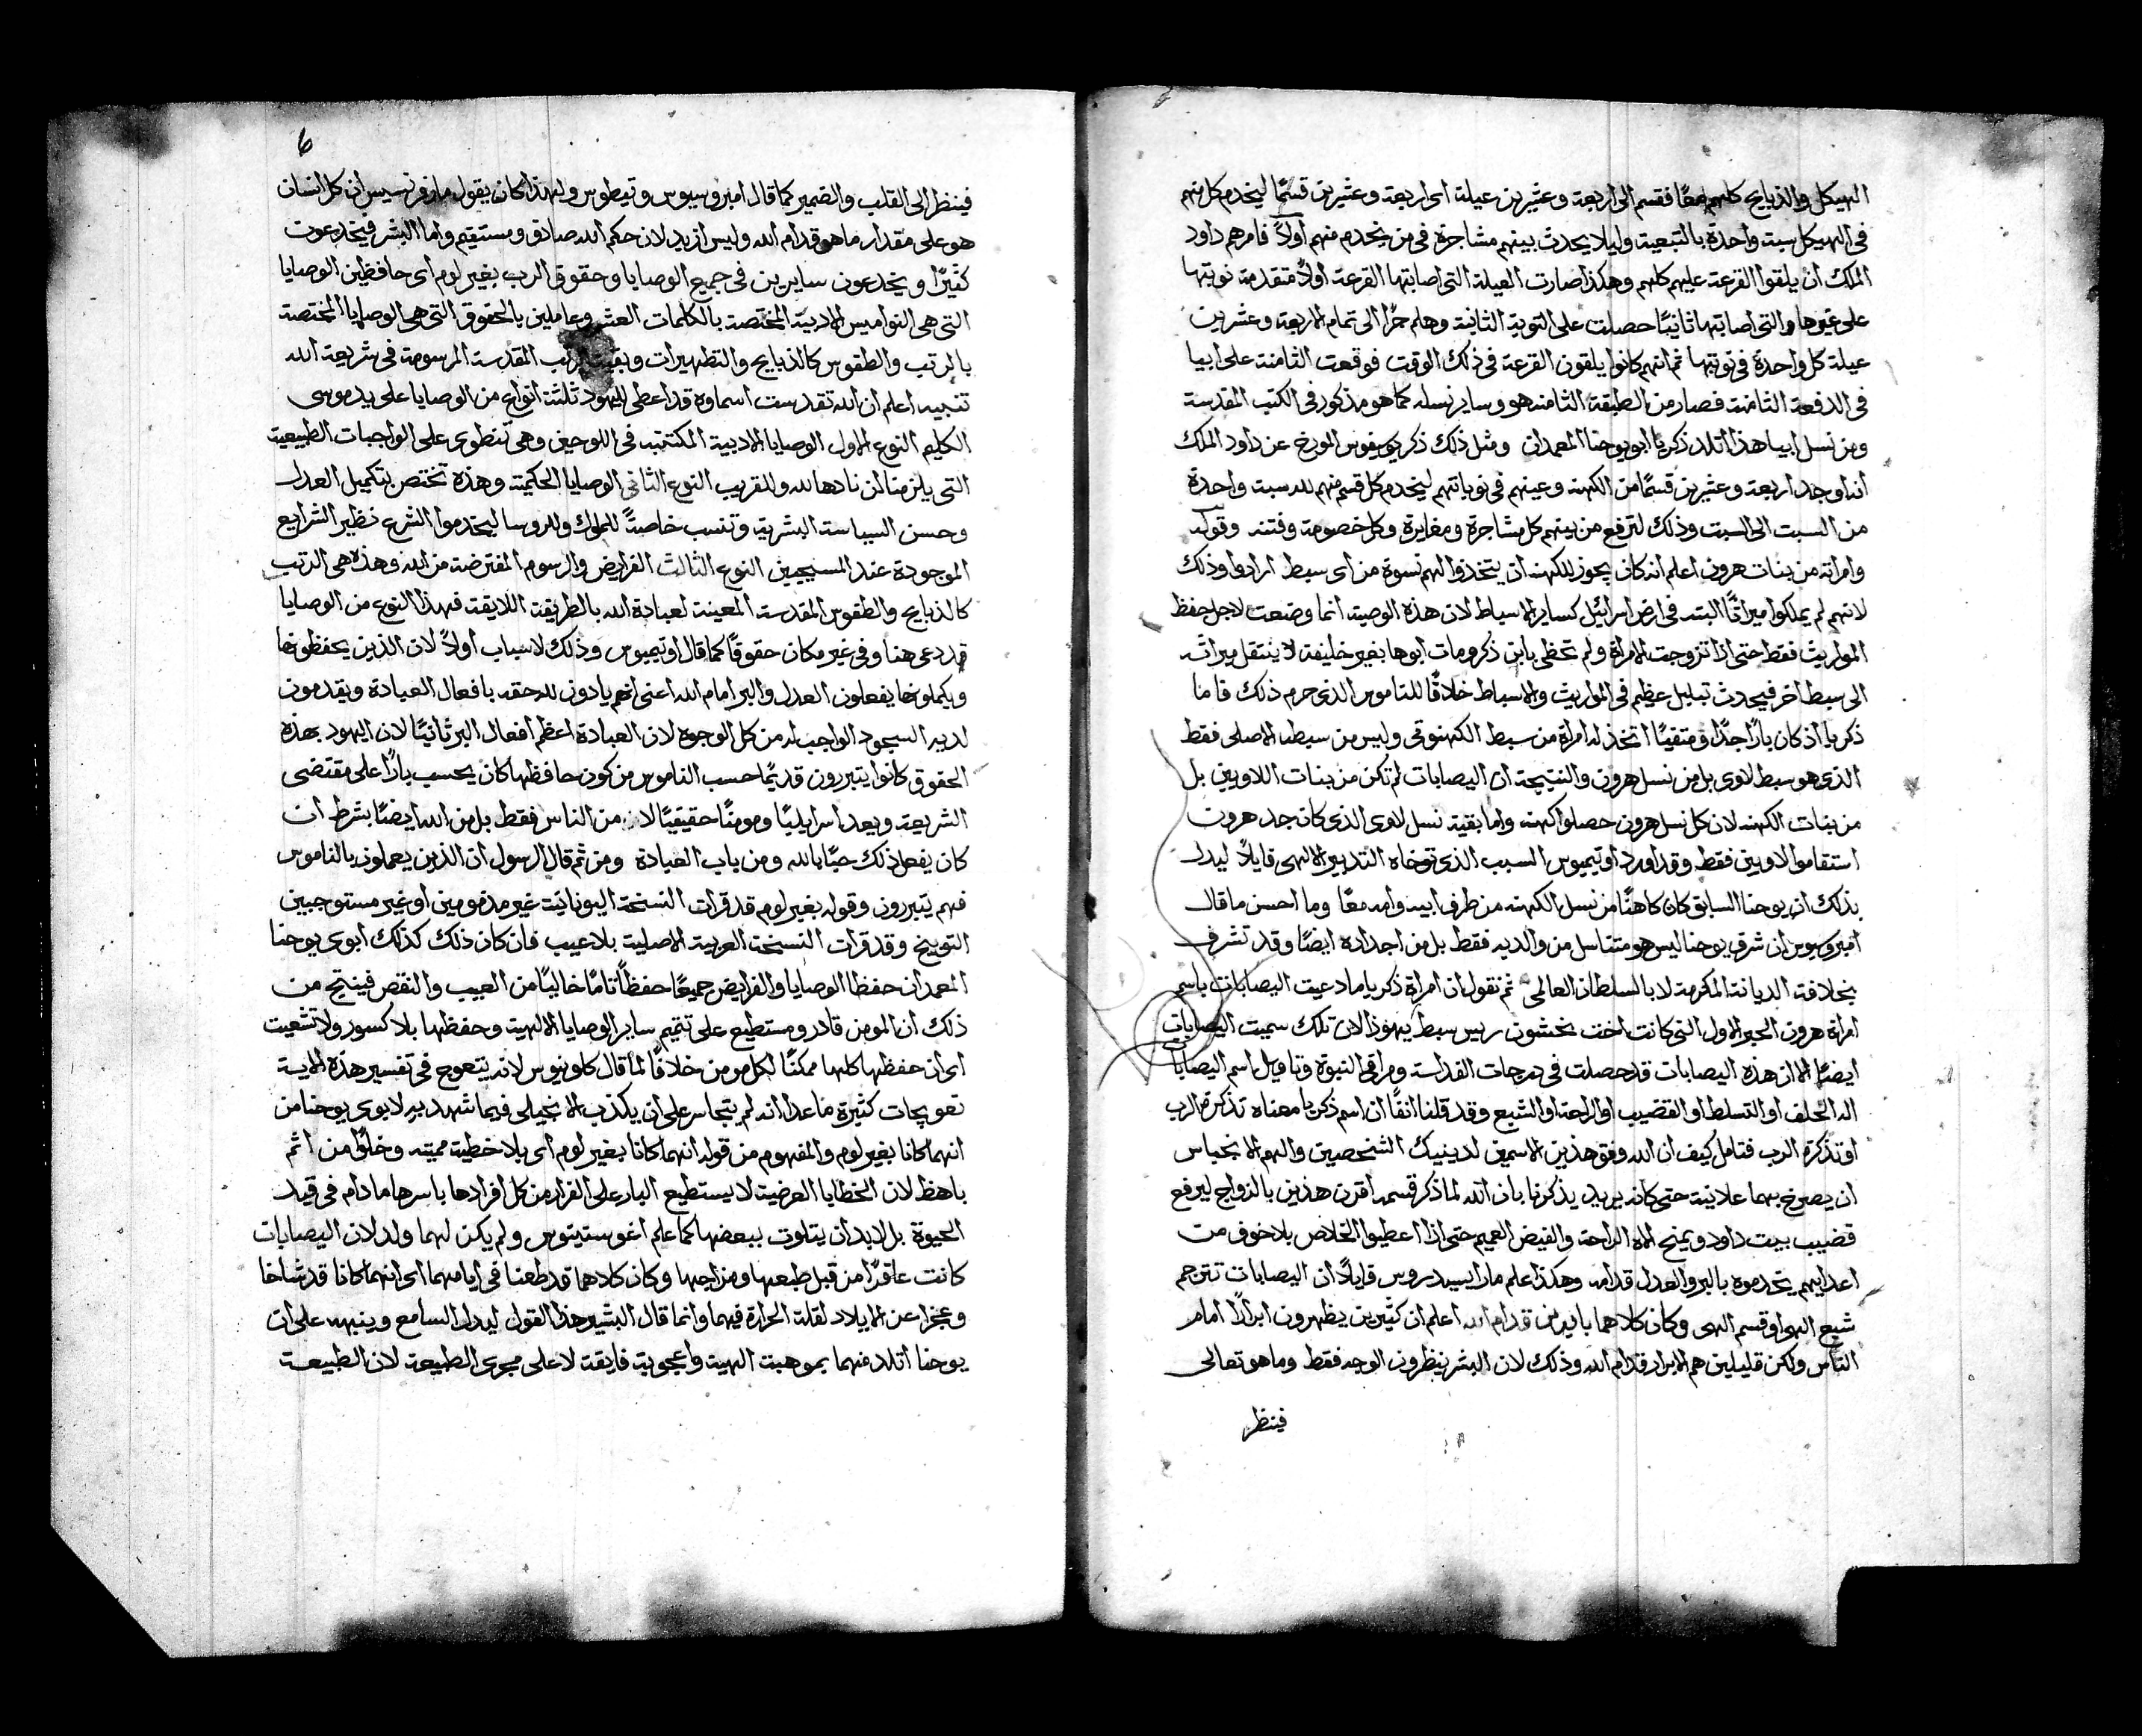 الهيكل والذبايح كلهم معًا فقسم الى اربعة وعشرين عيلة اى اربعة وعشرين قسمًا ليخدم كل منهم
فى الهيكل سبة واحدة بالتبعية وليلا يحدث بينهم مشاجرة فى من يخدم منهم اولاً فامرهم داود
الملك ان يلقوا القرعة عليهم كلهم وهكذا صارت العيلة التى اصابتها القرعة اولاً متقدمة نوبتها
على غيرها والتى اصابتها ثانيًا حصلت على النوبة الثانية وهلم جرًا الى تمام الاربعة وعشرين
عيلة كل واحدة فى نوبتها ثم انهم كانوا يلقون القرعة فى ذلك الوقت فوقعت الثامنة على ابيا
فى الدفعة الثامنة فصار من الطبقة الثامنه هو وساير نسله كما هو مذكور فى الكتب المقدسة
ومن نسل ابيا هذا اتلد ذكريا ابو يوحنا المعمدان ومثل ذلك ذكر يوسيفوس المورخ عن داود الملك
انه اوجد اربعة وعشرين قسمًا من الكهنه وعينهم فى نوباتهم ليخدم كل قسم منهم لله سبت واحدة
من السبت الى السبت وذلك لترفع من بينهم كل مشاجرة ومغايرة وكل خصومة وفتنه وقوله
وامراته من بنات هرون اعلم انه كان يجوز للكهنه ان يتخذوا لهم نسوة من اى سبط ارادوا وذلك
لانهم لم يملكوا ميراثًا البته فى ارض اسرائيل كساير الاسباط لان هذه الوصية انما وضعت لاجل حفظ
المواريث فقط حتى اذا تزوجت الامراة ولم تحظى بابن ذكر ومات ابوها بغير خليفة لا ينتقل ميراثه
الى سبط اخر فيحدث تبلبل عظيم فى المواريث والاسباط خلافًا للناموس الذى حرم ذلك فاما
ذكريا اذ كان بارًا جدًا ومتقيًا اتخذ له امراة من سبط الكهنوتى وليس من سبطه الاصلى فقط
الذى هو سبط لاوى بل من نسل هرون والنتيجة ان اليصابات لم تكن من بنات اللاويين بل
من بنات الكهنه لان كل نسل هرون حصلوا كهنه واما بقية نسل لاوى الذى كان جد هرون
استقاموا لاويين فقط وقد اورد اوتيميوس السبب الذى توخاه التدبير الالهى قايلاً ليدل
بذلك ان يوحنا السابق كان كاهنًا من نسل الكهنه من طرف ابيه وامه معًا وما احسن ما قال
امبروسيوس ان شرف يوحنا ليس هو متناسل من والديه فقط بل من اجداده ايضًا وقد تشرف
بخلافة الديانة المكرمة لا بالسلطان العالمى ثم نقول ان امراة ذكريا مادعيت اليصابات باسم
امراة هرون الحبر الاول التى كانت اخت نحشون ريس سبط يهوذا لان تلك سميت اليصابات
ايضًا الا ان هذه اليصابات قد حصلت فى درجات القداسة ومراقى النبوة وتاويل اسم اليصابات
اله الحلف او التسلط او القضيب او الراحة او الشبع وقد قلنا انفًا ان اسم ذكريا معناه تذكرة الرب
او تذكرة الرب فتامل كيف ان الله وفق هذين الاسمين لدينيك الشخصين والهم الانجيلى
ان يصرخ بهما علانية حتى كانه يريد يذكرنا بان الله لما ذكر قسمه اقرن هذين بالزواج ليرفع
قضيب بيت داود ويمنح الاه الراحة والفيض العميم حتى اذا اعطيوا الخلاص بلا خوف من
اعدايهم يخدموه بالبر والعدل قدامه وهكذا علم مار ايسيدوروس قايلاً ان اليصابات تترجم
شبع الهى او قسم الهى وكان كلاهما بارين قدام الله اعلم ان كثيرين يظهرون ابرارًا امام
الناس ولكن قليلين هم الابرار قدام الله وذلك لان البشر ينظرون الوجه فقط وما هو تعالى
فينظر
6
فينظر الى القلب والضمير كما قال امبروسيوس وتيطوس ولهذا كان يقول مار فرنسيس ان كل انسان
هو على مقدار ما هو قدام الله وليس ازيد لان حكم الله صادق ومستقيم واما البشر فيخدعون
كثيرًا ويخدعون سايرين فى جميع الوصايا وحقوق الرب بغير لوم اى حافظين الوصايا
التى هى النواميس الادبية المختصة بالكلمات العشر وعاملين بالحقوق التى هى الوصايا المختصة
بالرتب والطقوس كالذبايح والتطهيرات وبقية الرتب المقدسة المرسومة فى شريعة الله
تنبيه اعلم ان الله تقدست اسماوه قد اعطى لليهود ثلثة انواع من الوصايا على يد موسى
الكليم النوع الاول الوصايا الادبية المكتتبه فى اللوحين وهى تنطوى على الواجبات الطبيعية
التى يلزمنا ان نادها لله وللقريب النوع الثانى الوصايا الحكمية وهذه تختص بتكميل العدل
وحسن السياسة البشرية وتنسب خاصةً للملوك وللروسا ليخدموا الشرع نظير الشرايع
الموجودة عند المسيحيين النوع الثالث الفرايض والرسوم المفترضة من الله وهذه هى الرتب
كالذبايح والطقوس المقدسة المعينة لعبادة الله بالطريقة اللايقة فهذا النوع من الوصايا
قد دعى هنا وفى غير مكان حقوقًا كما قال اوتيميوس وذلك لاسباب اولاً لان الذين يحفظونها
ويكملونها يفعلون العدل والبر امام الله اعنى انهم يادون لله حقه بافعال العبادة ويقدمون
لديه السجود الواجب له من كل الوجوه لان العبادة اعظم افعال البر ثانيًا لان اليهود بهذه
الحقوق كانوا يتبررون قديمًا حسب الناموس من كون حافظها كان يحسب بارًا على مقتضى
الشريعة ويعد اسرايليًا ومومنًا حقيقيًا لا من الناس فقط بل من الله ايضًا بشرط ان
كان يفعل ذلك حبًا بالله ومن باب العبادة ومن ثم قال الرسول ان الذين يعملون بالناموس
فهم يتبررون وقوله بغير لوم قد قرات النسخة اليونانية غير مذمومين او غير مستوجبين
التوبيخ وقد قرات النسخة العربية الاصلية بلا عيب فان كان ذلك كذلك ابوى يوحنا
المعمدان حفظا الوصايا والفرايض جميعًا حفظًا تامًا خاليًا من العيب والنقص فينتج من
ذلك ان المومن قادر ومستطيع على تتميم ساير الوصايا الالهية وحفظها بلا كسور ولا تشعيث
اى ان حفظها كلها ممكنًا لكل مومن خلافًا لما قال كلوينوس لانه يتعوج فى تفسير هذه الاية
تعويجات كثيرة ما عدا انه لم يتجاسر على ان يكذب الانجيلى فيما شهد به لابوى يوحنا من
انهما كانا بغير لوم والمفهوم من قوله انهما كانا بغير لوم اى بلا خطية مميته وخلوًا من اثم
باهظ لان الخطايا العرضية لا يستطيع البار على الفرار من كل افرادها باسرها ما دام فى قيد
الحيوة بل لابد ان يتلوث ببعضها كما علم اغوستينوس ولم يكن لهما ولد لان اليصابات
كانت عاقرًا من قبل طبعها ومزاجها وكان كلاهما قد طعنا فى ايامهما اى انهما كانا قد شاخا
وعجزا عن الايلاد لقلة الحرارة فيهما وانما قال البشير هذا القول ليدل السامع وينبهه على ان
يوحنا اتلد منهما بموهبة الهية واعجوبة فايقة لا على مجرى الطبيعة لان الطبيعة